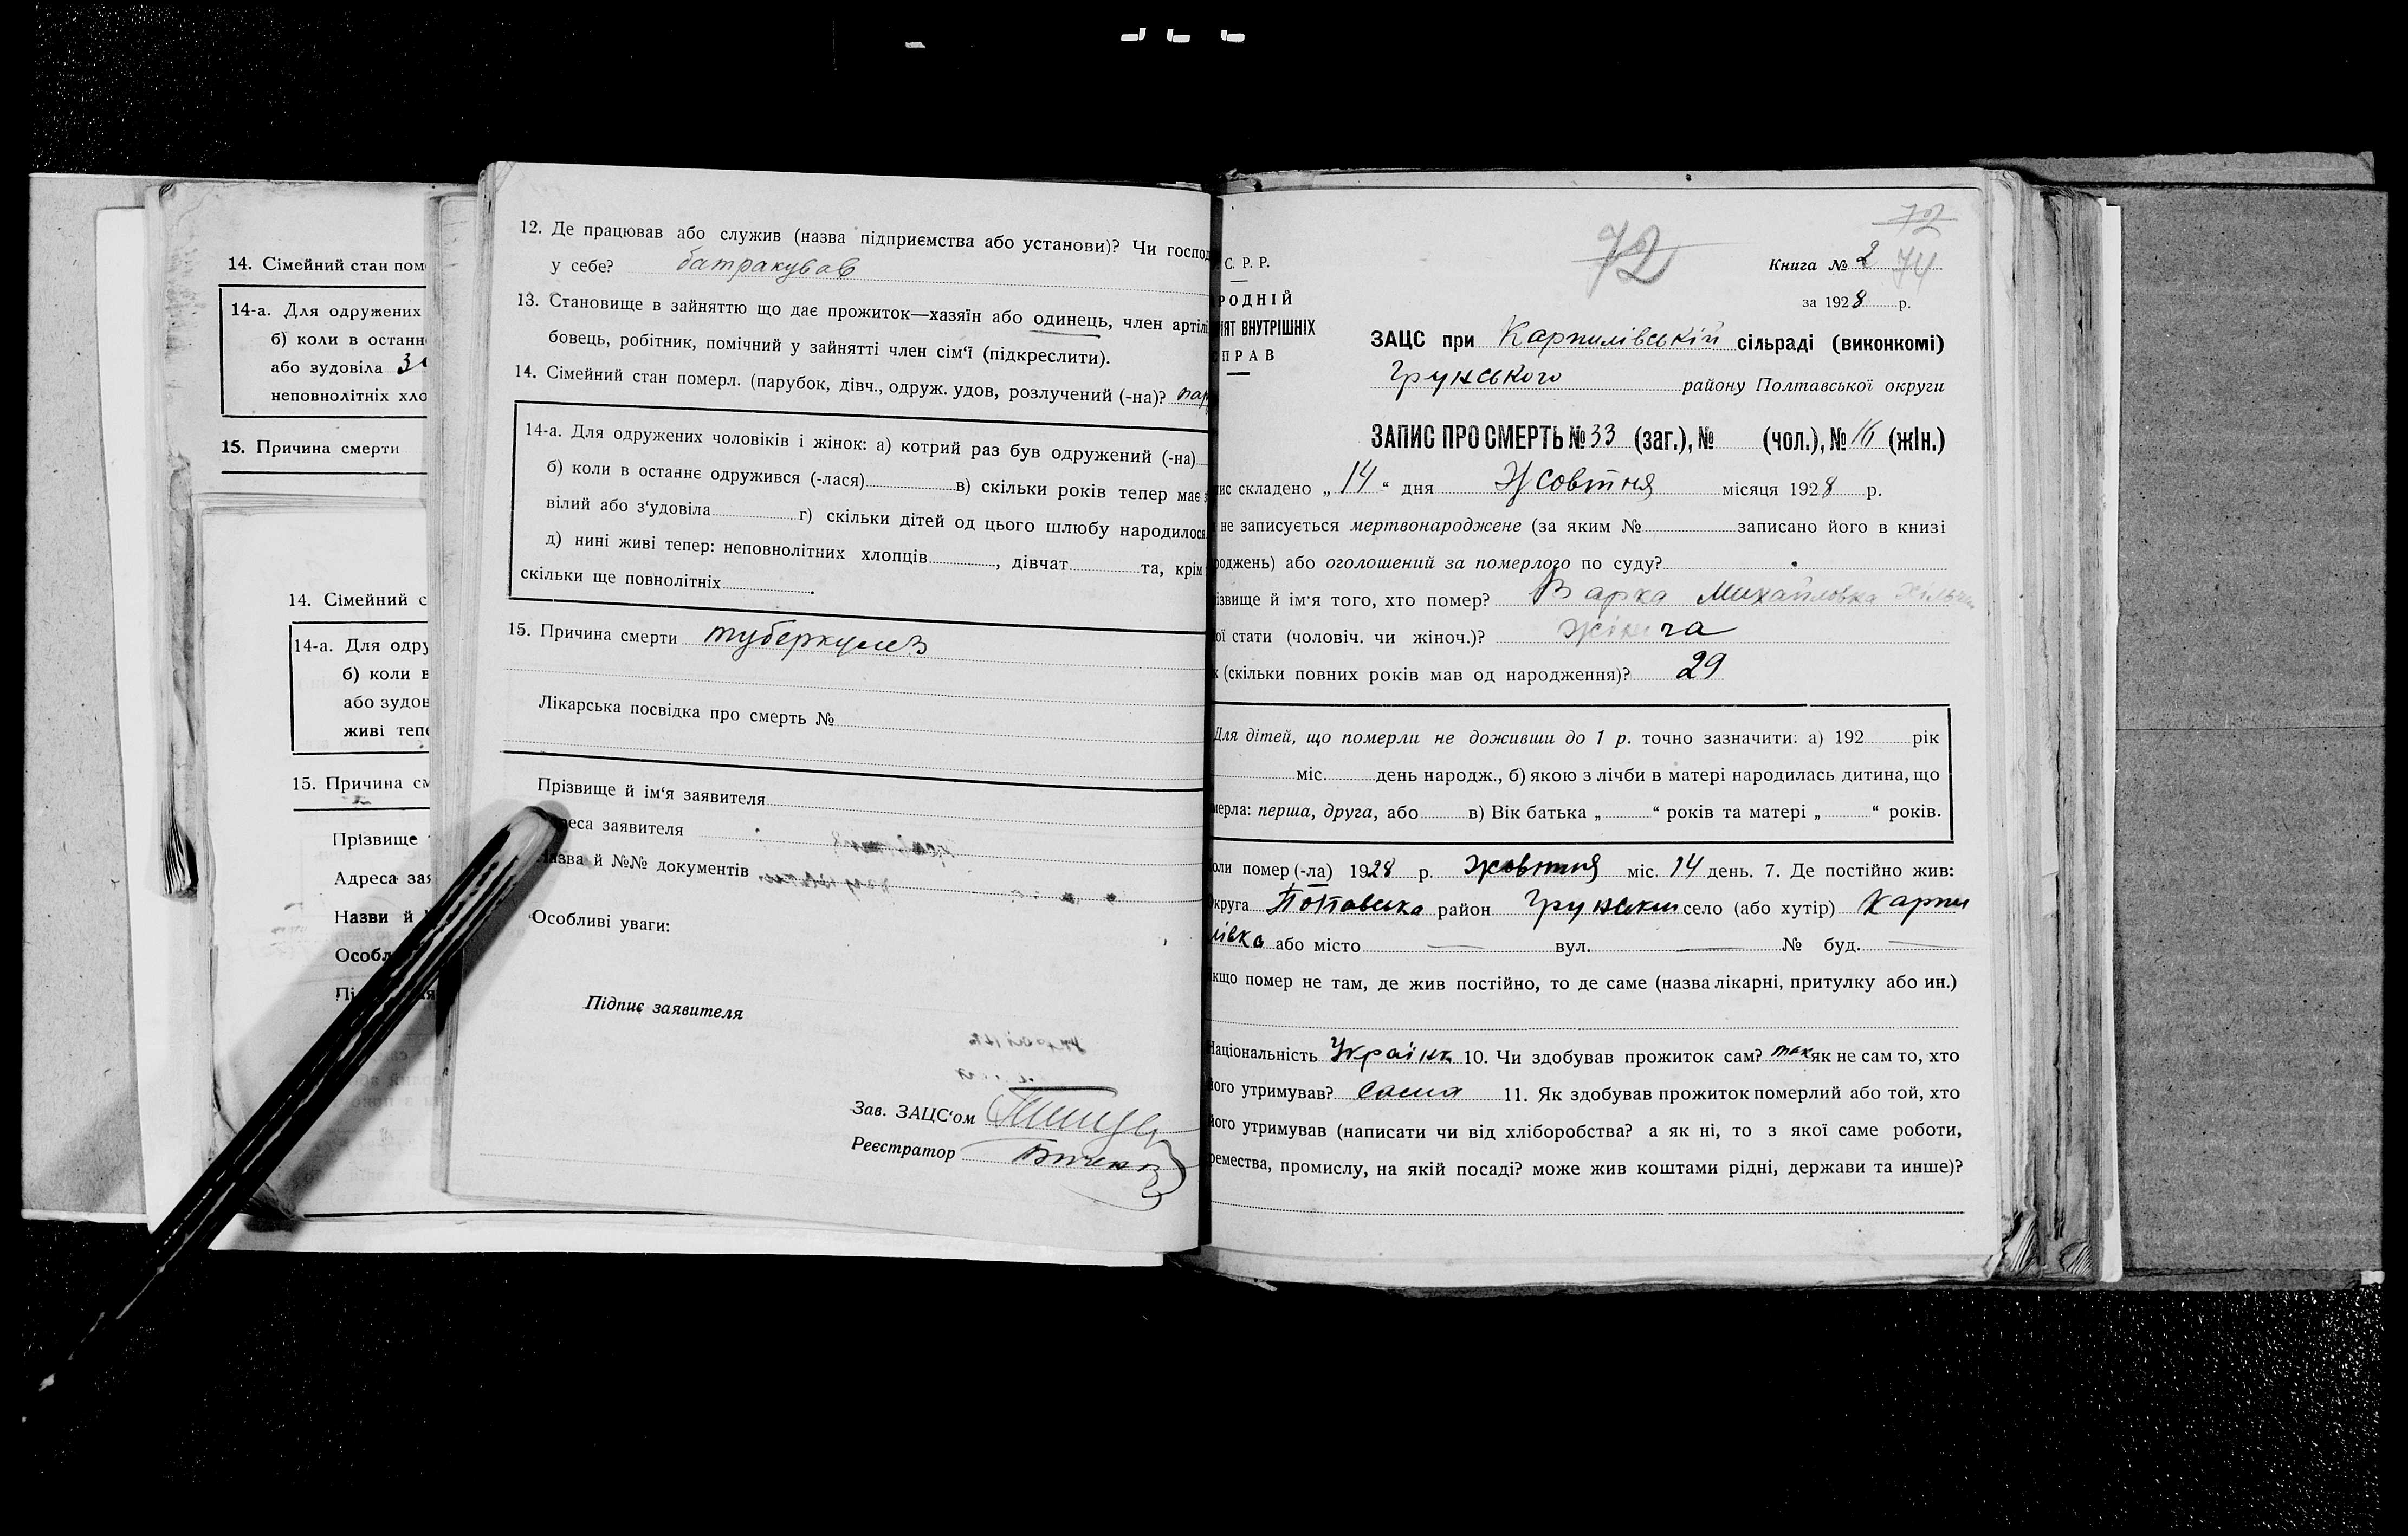 14. Сімейний стан пом
14-а. Для одружених
б) коли в останн
або зудовіла
неповнолітніх хло
15. Причина смерти
14. Сімейний с
14-а. Для одру
б) коли в
або зудов
живі тепе
15. Причина см
Прізвище
Адреса зая
Назви й
Особл
12. Де працював або служив (назва підприємства або установи)? Чи господ
у себе? батракував
13. Становище в зайняттю що дає прожиток—хазяїн або одинець, член артілі
бовець, робітник, помічний у зайнятті член сім'ї (підкреслити).
14. Сімейний стан померл. (парубок, дівч., одруж. удов, розлучений (-на)? пар
14-а. Для одружених чоловіків і жінок: а) котрий раз був одружений (-на)
б) коли в останнє одружився (-лася) в) скільки років тепер має з
вілий або з'удовіла г) скільки дітей од цього шлюбу народилося
д) нині живі тепер: неповнолітних хлопців, дівчат та, крім
скільки ще повнолітніх.
15. Причина смерти туберкулез
Лікарська посвідка про смерть №
Прізвище й ім'я заявителя
реса заявителя
азва й №№ документів
Особливі уваги:
Підпис заявителя
Зав. ЗАЦС'ом
Реєстратор
72
72
С. Р. Р.
Книга № 2 74
РОДНІЙ
за 1928 р.
ІЯТ ВНУТРІШНІХ
ПРАВ
ЗАЦС при Карпилівській сільраді (виконкомі)
Грунського району Полтавської округи
ЗАПИС ПРО СМЕРТЬ № 33 (заг.), № (чол.), № 16 (жін.)
ис складено „14“ дня Жовтня місяця 1928 р.
не записується мертвонароджене (за яким № записано його в книзі
роджень) або оголошений за померлого по суду?
ізвище й ім'я того, хто помер? Варка Михайловка
ої стати (чоловіч. чи жіноч.)? жіноча
к (скільки повних років мав од народження)? 29
Для дітей, що померли не доживши до 1 р. точно зазначити: а) 192 рік
міс. день народж., б) якою з лічби в матері народилась дитина, що
мерла: перша, друга, або в) Вік батька „ “ років та матері „ “ років.
оли помер (-ла) 1928 р. жовтня міс. 14 день. 7. Де постійно жив:
округа Полтавська район Грунський село (або хутір) Карпи
лівка або місто — вул. — № буд. —
кщо помер не там, де жив постійно, то де саме (назва лікарні, притулку або ин.)
Національність Українк 10. Чи здобував прожиток сам? так як не сам то, хто
його утримував? 11. Як здобував прожиток померлий або той, хто
його утримував (написати чи від хліборобства? а як ні, то з якої саме роботи,
ремества, промислу, на якій посаді? може жив коштами рідні, держави та инше)?